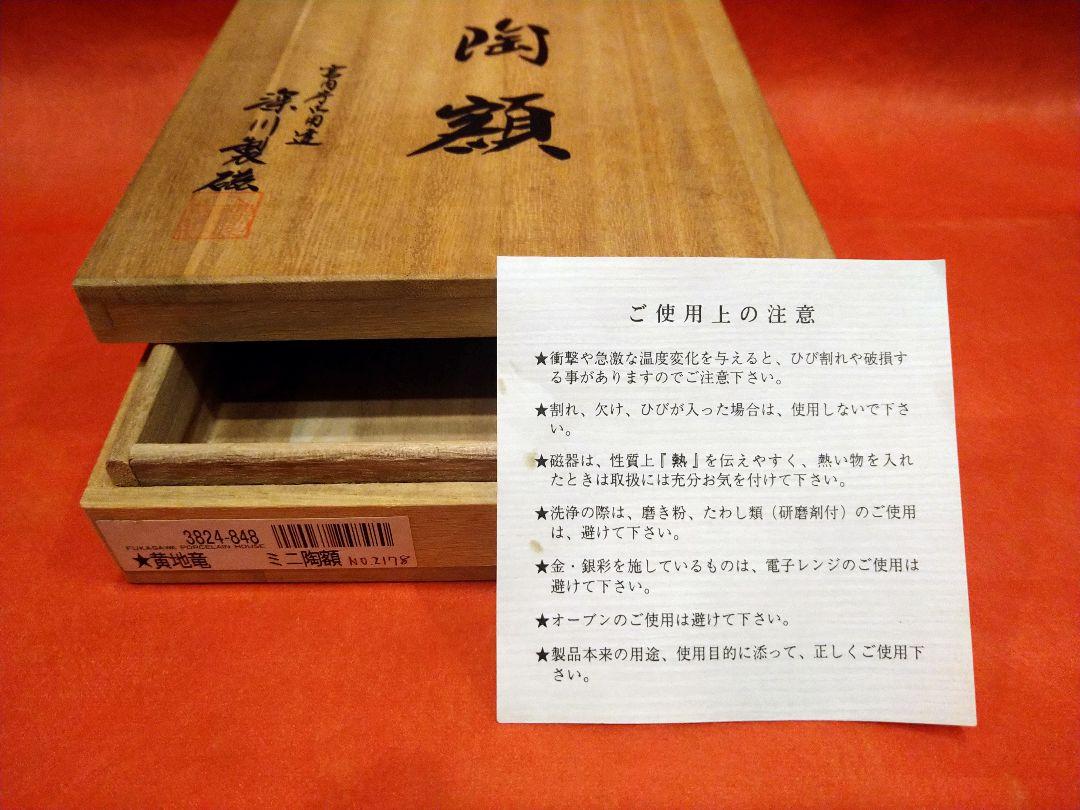 陶額
宮内庁御用達
深川製磁
3824-848
FUKAGAWA PORCELAIN HOUSE
★黄地竜
ミニ陶額 NO.2178
ご使用上の注意
★衝撃や急激な温度変化を与えると、ひび割れや破損す
る事がありますのでご注意下さい。
★割れ、欠け、ひびが入った場合は、使用しないで下さ
い。
★磁器は、性質上『熱』を伝えやすく、熱い物を入れ
たときは取扱には充分お気を付けて下さい。
★洗浄の際は、磨き粉、たわし類（研磨剤付）のご使用
は、避けて下さい。
★金・銀彩を施しているものは、電子レンジのご使用は
避けて下さい。
★オーブンのご使用は避けて下さい。
★製品本来の用途、使用目的に添って、正しくご使用下
さい。